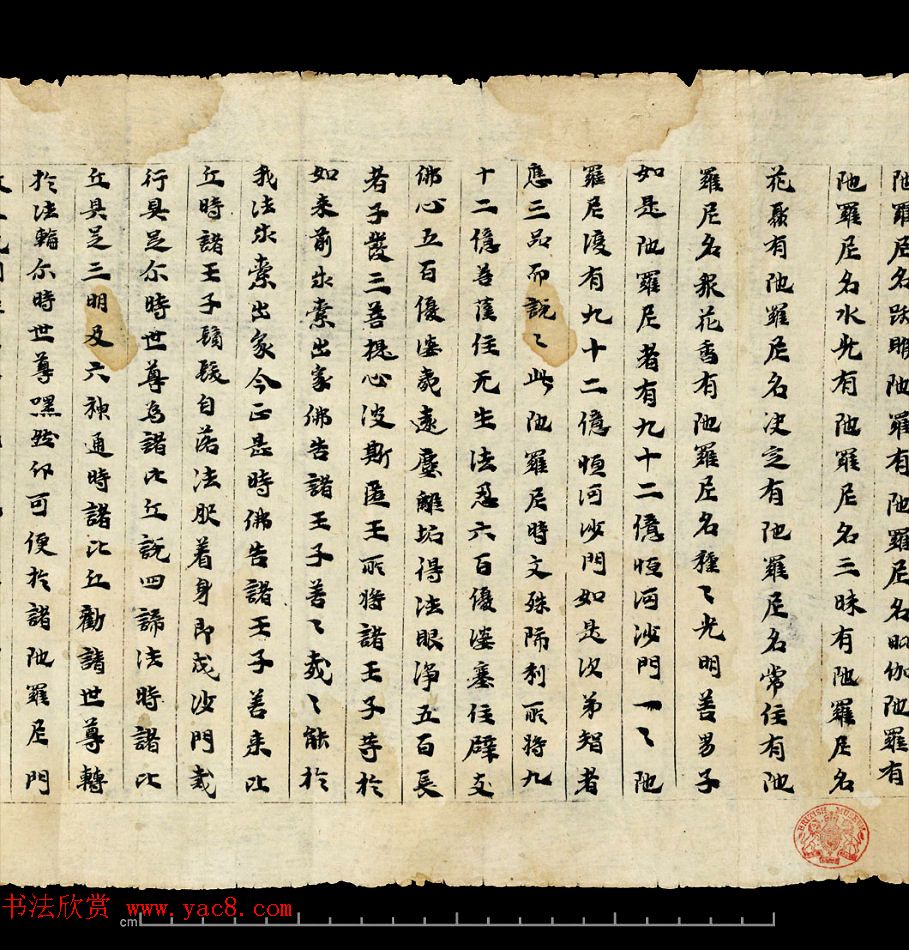 陁羅尼名趺䁈陁羅有陁羅尼名昢伽陁羅有
陁羅尼名水光有陁羅尼名三昧有陁羅尼名
花聚有陁羅尼名决定有陁羅尼名常住有陁
羅尼名衆花香有陁羅尼名種〻光明善男子
如是陁羅尼者有九十二億恒河沙門一〻陁
羅尼復有九十二億恒河沙門如是次弟智者
應三品而說〻此陁羅尼時文殊師利所將九
十二億菩薩住无生法忍六百優婆塞住辟支
佛心五百優婆夷遠塵離垢得法眼淨五百長
者子發三菩提心波斯匿王所將諸王子等於
如来前求索出家佛告諸王子善〻哉〻能於
我法求索出家今正是時佛告諸王子善来比
丘時諸王子鬚髮自落法服着身即成沙門戒
行具足尒時世尊為諸比丘說四諦法時諸比
丘具足三明及六神通時諸比丘勸請世尊轉
於法輪尒時世尊嘿然印可便於諸陁羅尼門
BRITISH MUSEUM
书法欣赏 www.yac8.com
cm